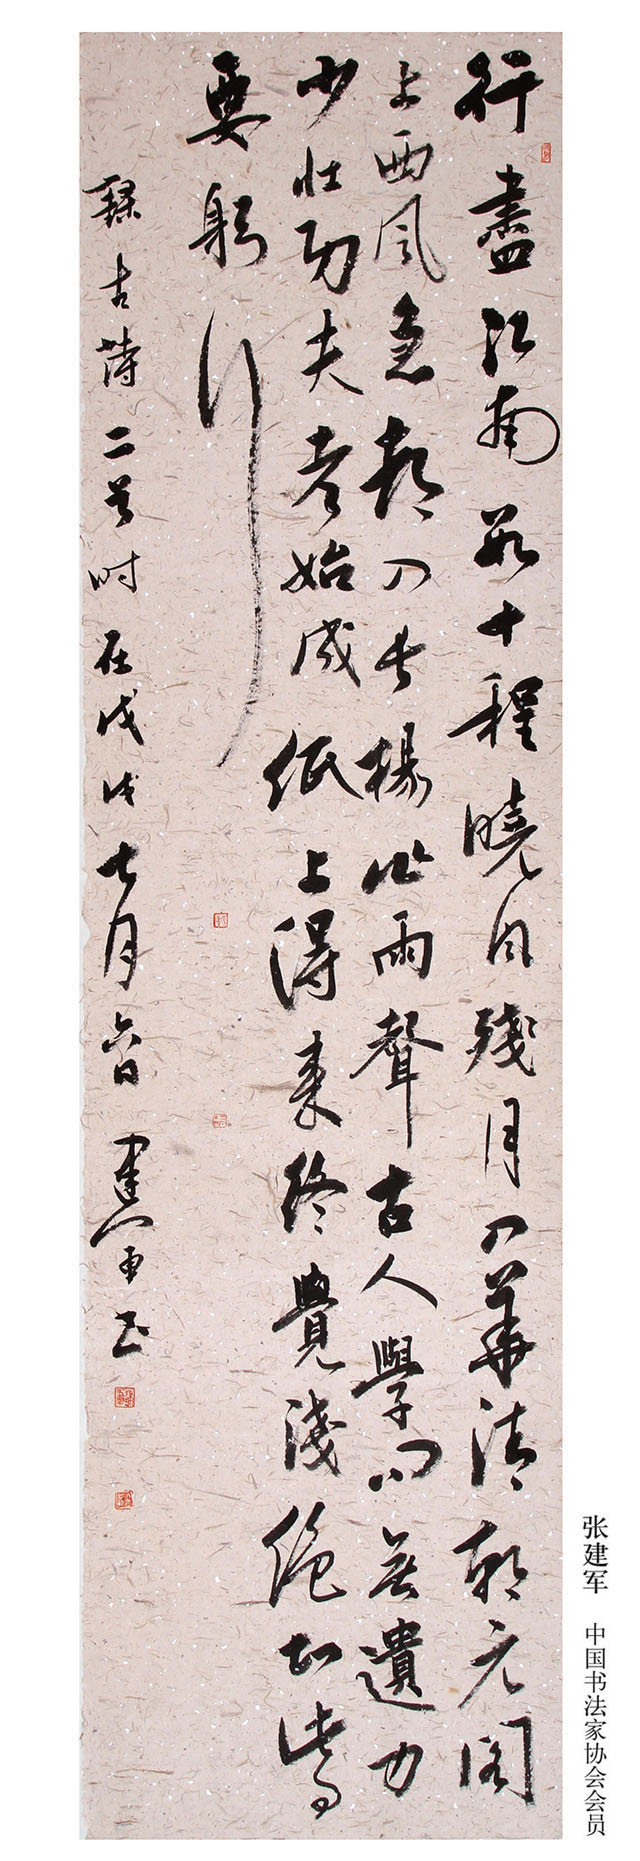 行盡江南數十程曉風殘月入華清朝元閣
上西風急都入長楊作雨聲古人學問無遺力
少壯功夫老始成紙上得來終覺淺絕知此事
要躬行
錄古詩二首時在戊戌七月六日建軍書
张建军 中国书法家协会会员